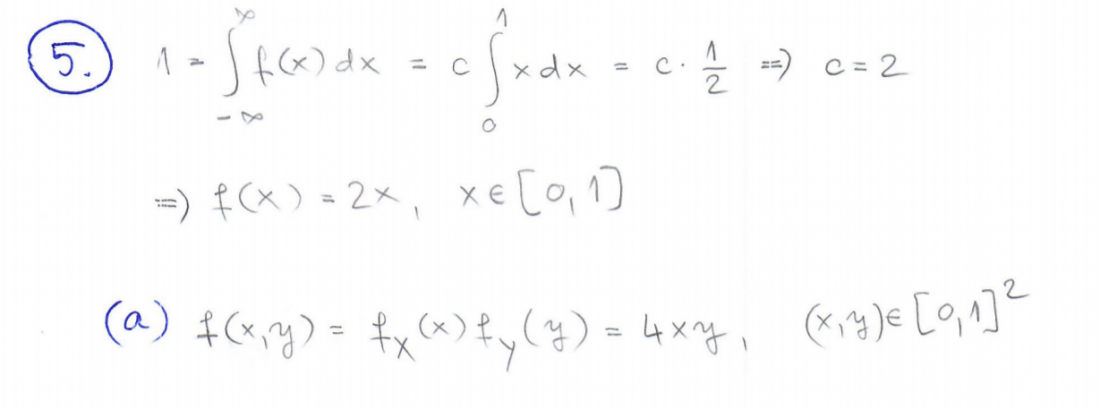 5. 1 = ∫_{-∞}^{∞} f(x) dx = c ∫_0^1 x dx = c · 1/2 ⇒ c = 2
⇒ f(x) = 2x, x ∈ [0,1]
(a) f(x,y) = f_X(x) f_Y(y) = 4xy, (x,y) ∈ [0,1]²